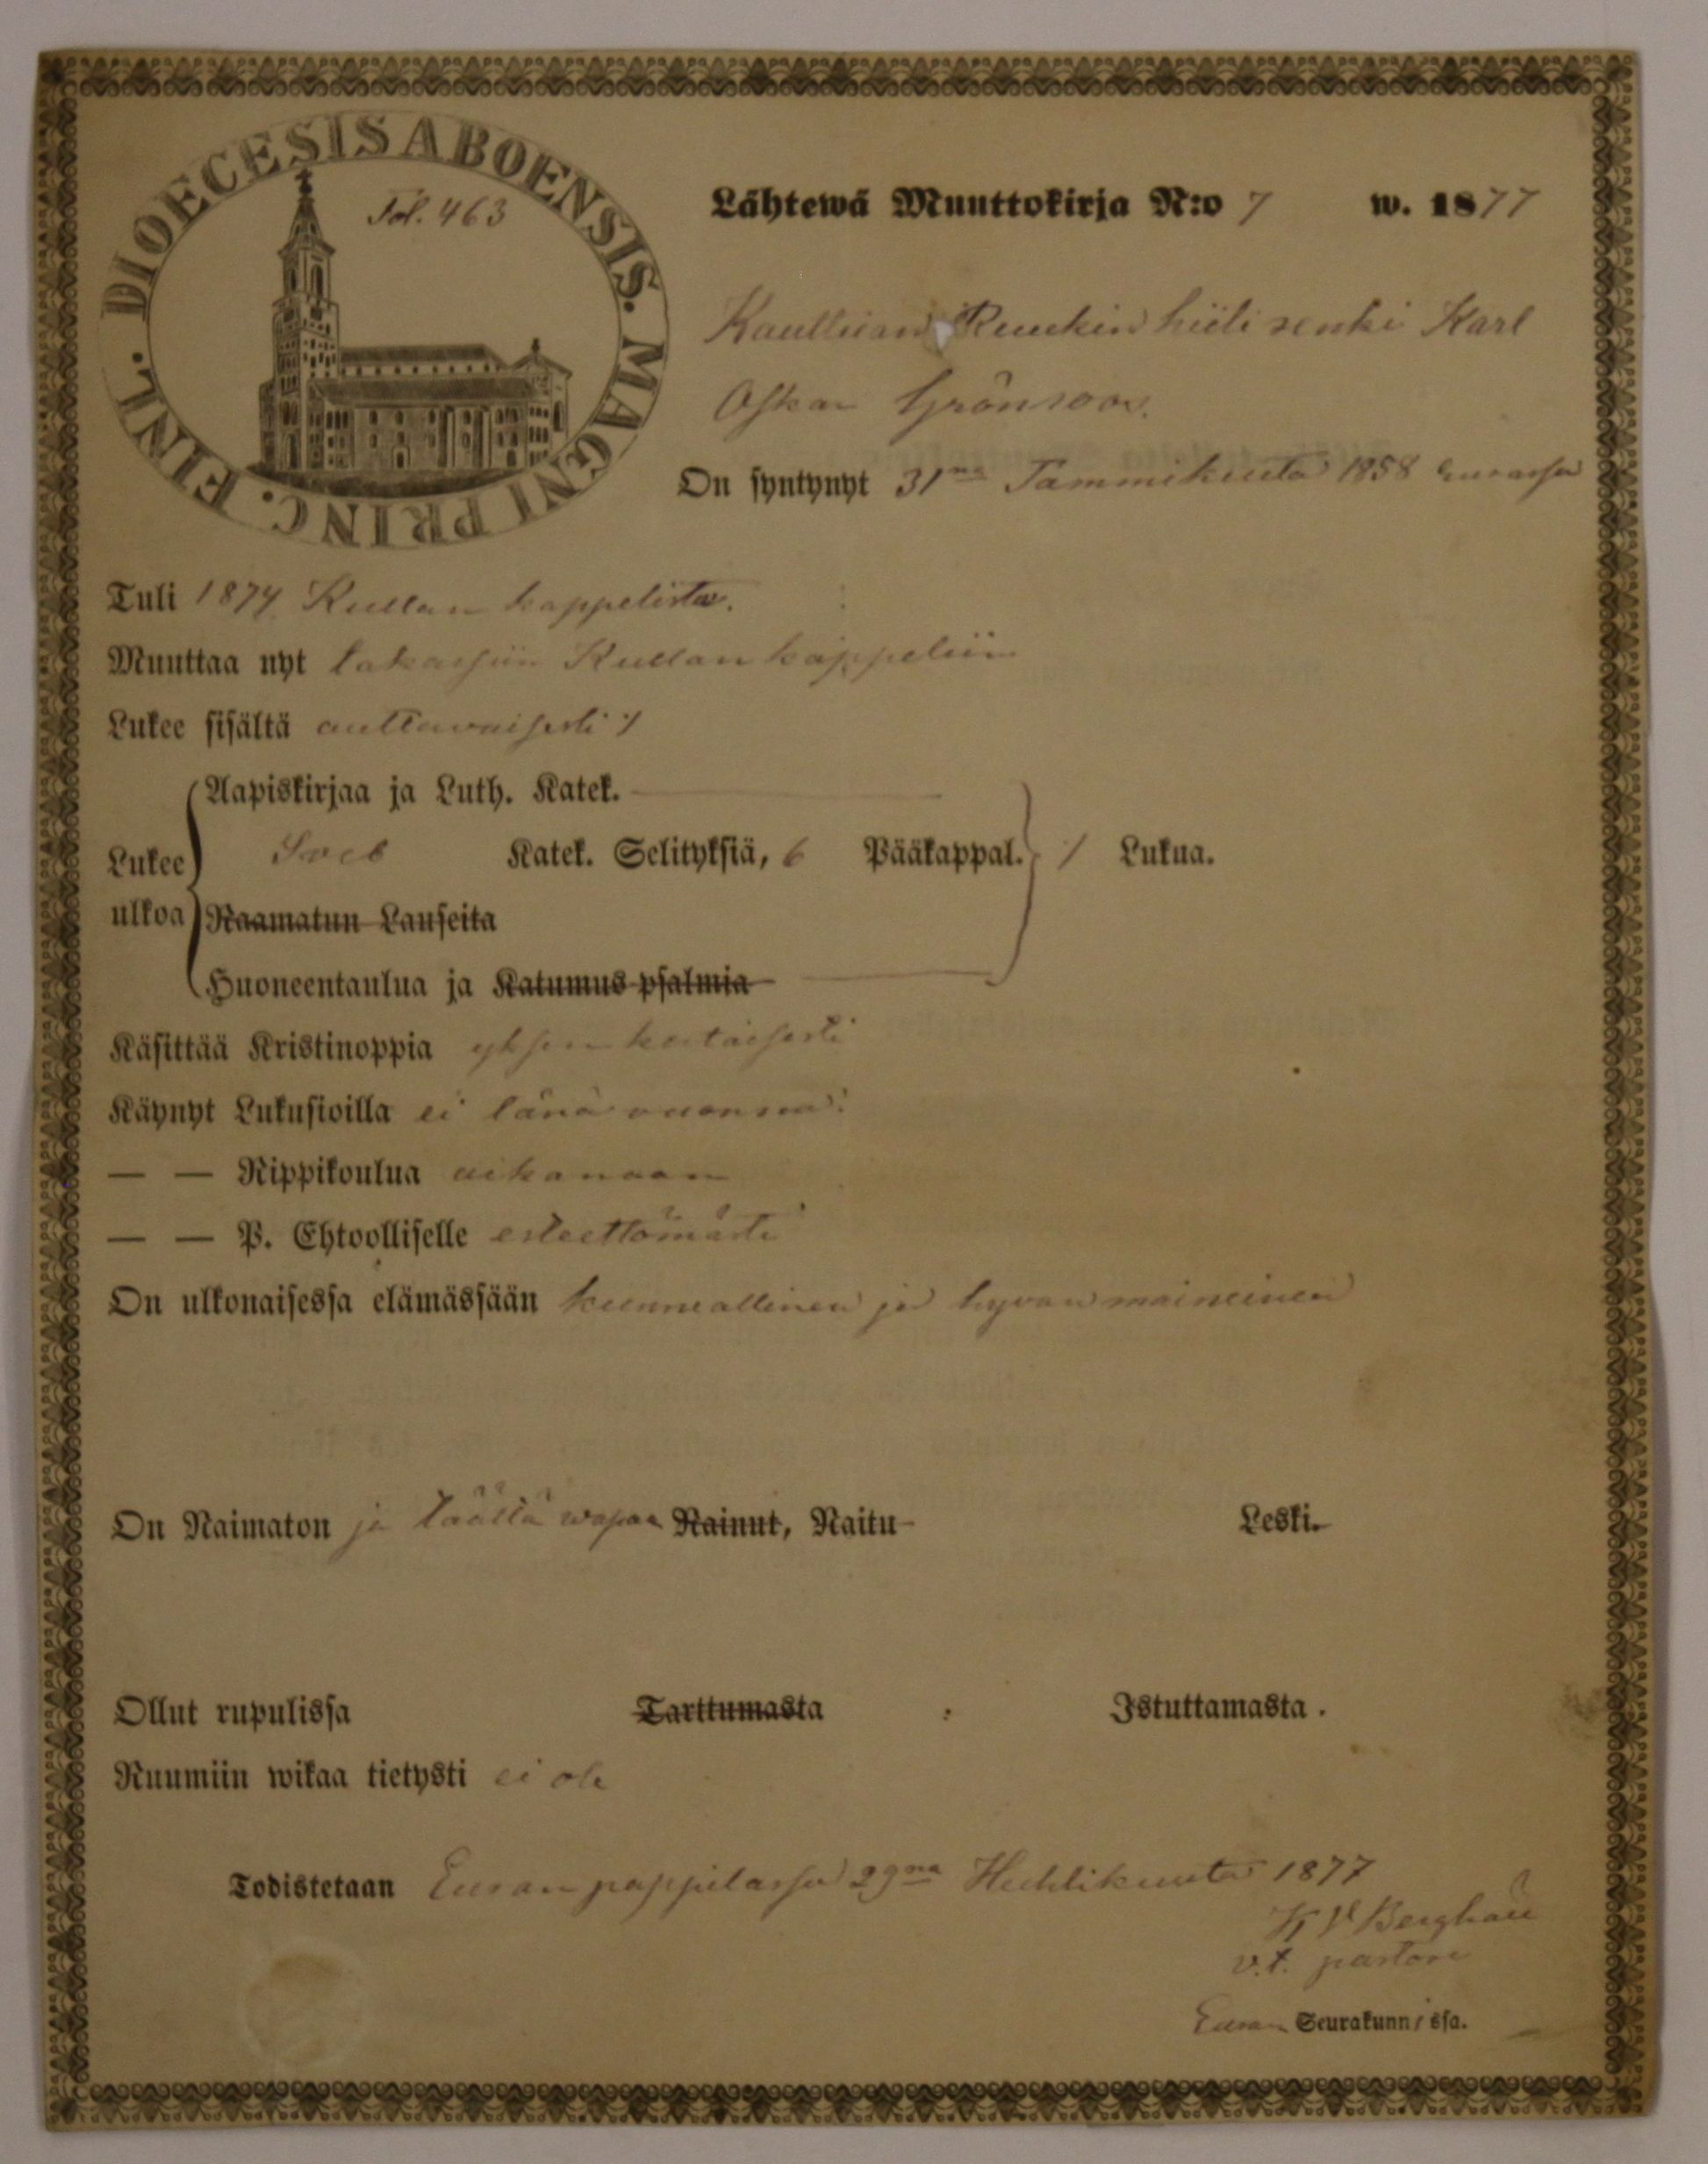 DIOECESIS ABOENSIS. MAGNI PRINC. FINL.
Fol. 463
Lähtewä Muuttokirja N:o 7 w. 1877
Kauttuan Ruukin hiili renki Karl
Oskar Grönroos.
On syntynyt 31nä Tammikuuta 1858 Eurassa
Tuli 1874 Kullan kappelista.
Muuttaa nyt takaisiin Kullan kappeliin
Lukee sisältä auttawaisesti /
Aapiskirjaa ja Luth. Katek.
Lukee ulkoa Sveb Katek. Selityksiä, 6 Pääkappal. / Lukua.
Raamatun Lauseita
Huoneentaulua ja Katumus psalmia
Käsittää Kristinoppia yksinkertaisesti
Käynyt Lukusioilla ei tänä vuonna
— — Rippikoulua aikanaan
— — P. Ehtoolliselle esteettömästi
On ulkonaisessa elämässään kunniallinen ja hyvän maineinen
On Naimaton ja täältä wapaa Nainut, Naitu Leski.
Ollut rupulissa Tarttumasta : Istuttamasta .
Ruumiin wikaa tietysti ei ole
Todistetaan Euran pappilassa 29nä Huhtikuuta 1877
Berghäll
v.t. pastori
Euran Seurakunnissa.